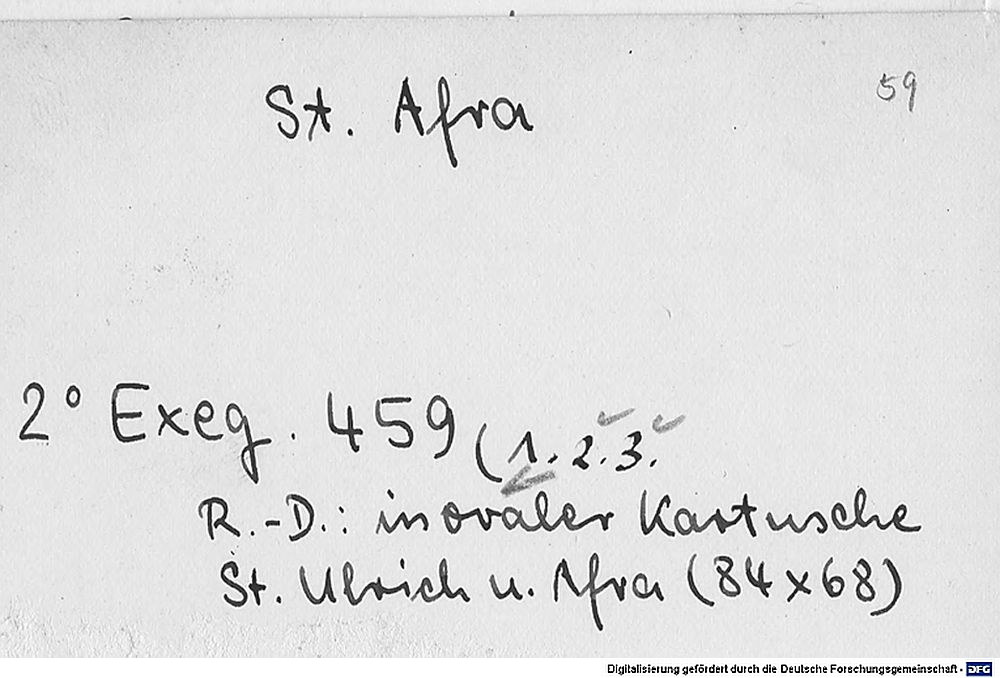 59
St. Afra
2° Exeg. 459 (1. 2. 3.
R.-D.: in ovaler Kartusche
St. Ulrich u. Afra (84 x 68)
Digitalisierung gefördert durch die Deutsche Forschungsgemeinschaft - DFG